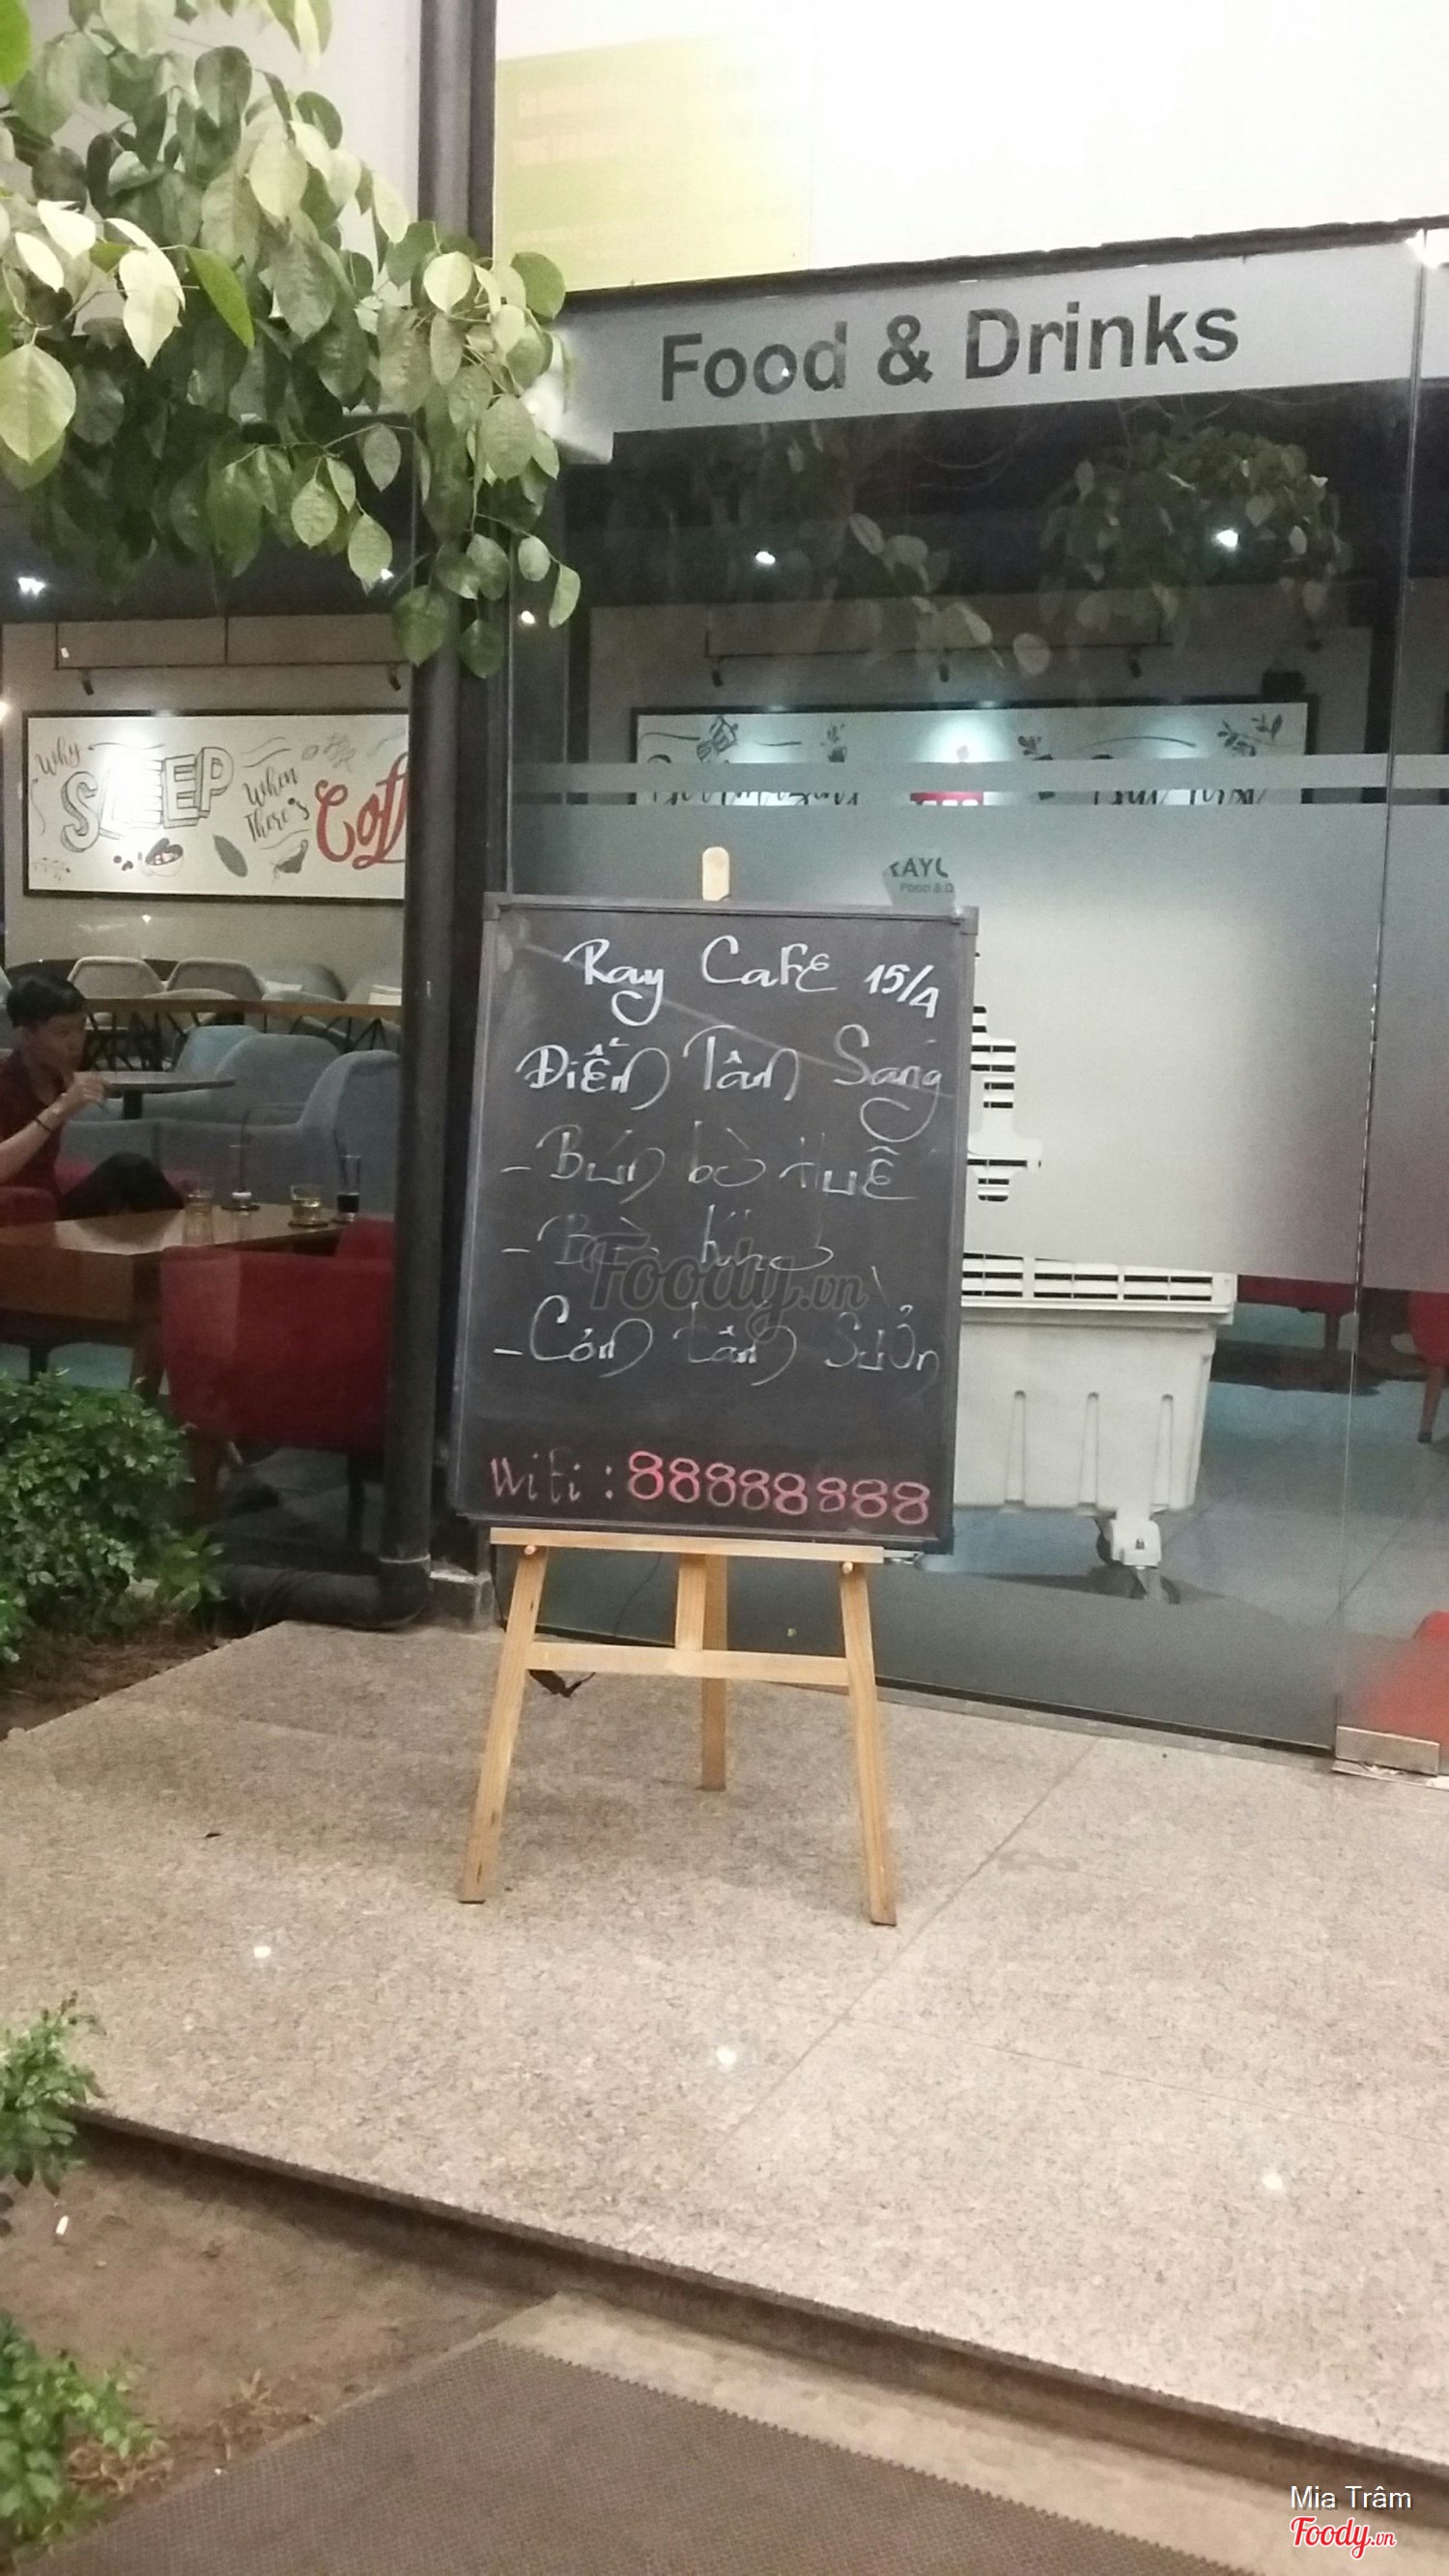 Food & Drinks
Why SLEEP When There's Coff
RAYC
Food & D
Ray Cafe 15/4
Điểm Tâm Sáng
- Bún bò Huế
- Bò
- Cơm tấm Sườn
Wifi : 88888888
Foody.vn
Mia Trâm
Foody.vn